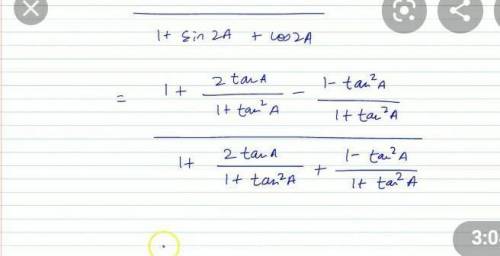 1 + sin 2A + cos 2A
= 1 + 2 tan A / 1 + tan²A − 1 - tan²A / 1 + tan²A
1 + 2 tan A / 1 + tan²A + 1 - tan²A / 1 + tan²A